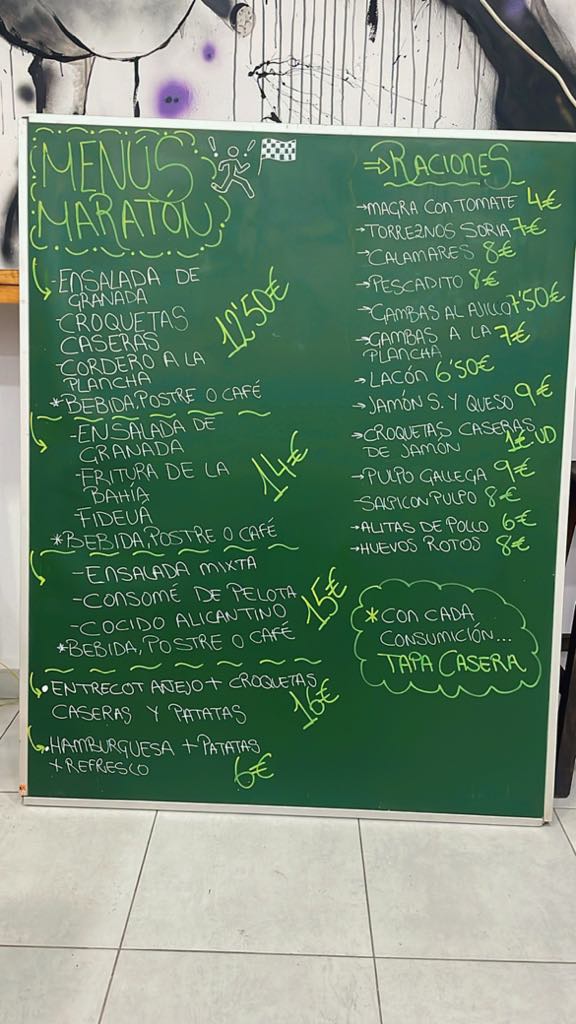 MENÚS
MARATÓN
-ENSALADA DE
GRANADA
-CROQUETAS
CASERAS
-CORDERO A LA
PLANCHA
12'50€
*BEBIDA, POSTRE O CAFÉ
-ENSALADA DE
GRANADA
-FRITURA DE LA
BAHÍA
FIDEUÁ
14€
*BEBIDA, POSTRE O CAFÉ
-ENSALADA MIXTA
-CONSOMÉ DE PELOTA
-COCIDO ALICANTINO
15€
*BEBIDA, POSTRE O CAFÉ
•ENTRECOT AÑEJO + CROQUETAS
CASERAS Y PATATAS
16€
•HAMBURGUESA + PATATAS
+ REFRESCO
6€
⇒RACIONES
→MAGRA CON TOMATE 4€
→TORREZNOS SORIA 7€
→CALAMARES 8€
→PESCADITO 8€
→GAMBAS AL AJILLO 7'50€
→GAMBAS A LA
PLANCHA 7€
→LACÓN 6'50€
→JAMÓN S. Y QUESO 9€
→CROQUETAS CASERAS
DE JAMÓN 1€ UD
→PULPO GALLEGA 9€
SALPICON PULPO 8€
→ALITAS DE POLLO 6€
→HUEVOS ROTOS 8€
*CON CADA
CONSUMICIÓN...
TAPA CASERA